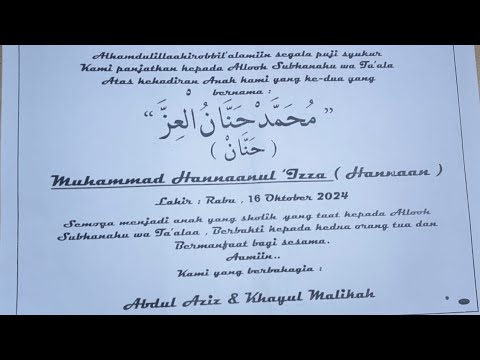 Alhamdulillaahirobbil'alamiin segala puji syukur
Kami panjatkan kepada Allooh Subhanahu wa Ta'ala
Atas kehadiran Anak kami yang ke-dua yang
bernama :
“ مُحَمَّدْ حَنَّانُ الْعِزَّ ”
( حَنَّانْ )
Muhammad Hannaanul 'Izza ( Hannaan )
Lahir : Rabu , 16 Oktober 2024
Semoga menjadi anak yang sholih yang taat kepada Allooh
Subhanahu wa Ta'alaa , Berbakti kepada kedua orang tua dan
Bermanfaat bagi sesama.
Aamiin..
Kami yang berbahagia :
Abdul Aziz & Khayul Malikah